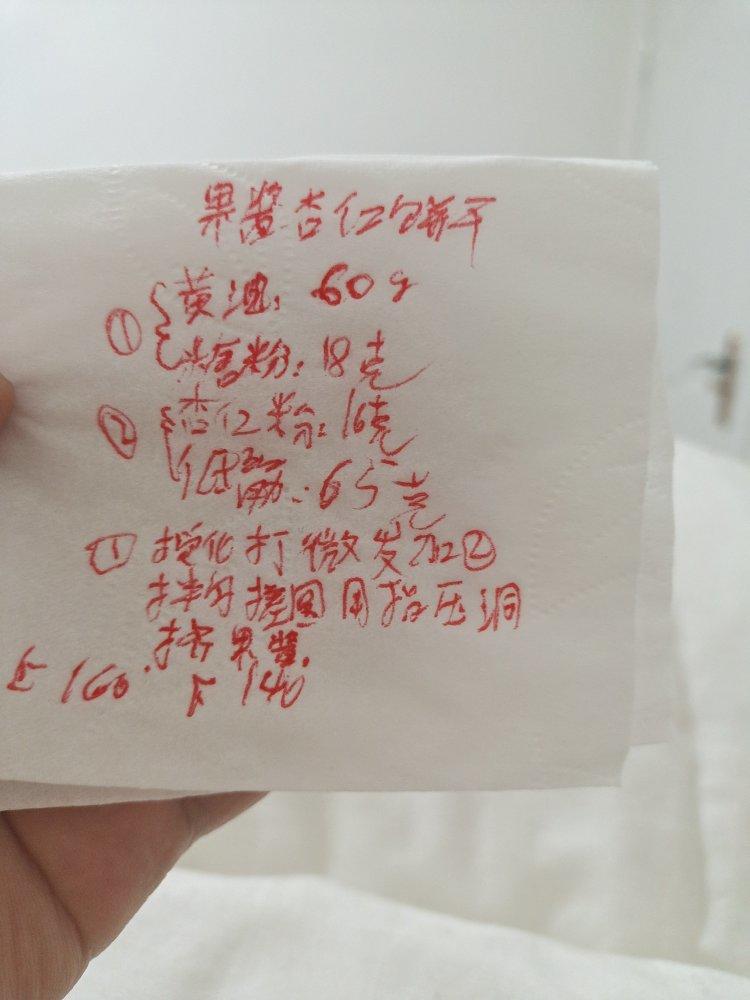 果酱杏仁饼干
① 黄油: 60g
糖粉: 18克
② 杏仁粉: 16克
低筋: 65克
① 搅化打微发加②
拌匀搓圆用指压洞
挤果酱.
上160. 下140